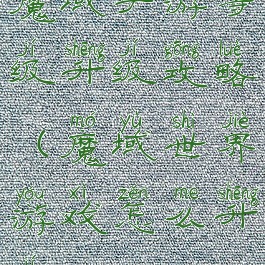 魔域手游等
jí shēng jí gōng lüè
级升级攻略
mó yù shì jiè
(魔域世界
yóu xì zěn me shēng
游戏怎么升